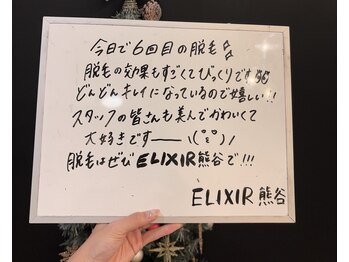 今日で6回目の脱毛
脱毛の効果もすごくてびっくりです
どんどんキレイになっているので嬉しい!!
スタッフの皆さんも美人でかわいくて
大好きです──\(°ε°)/
脱毛はぜひELIXIR熊谷で!!!
ELIXIR 熊谷